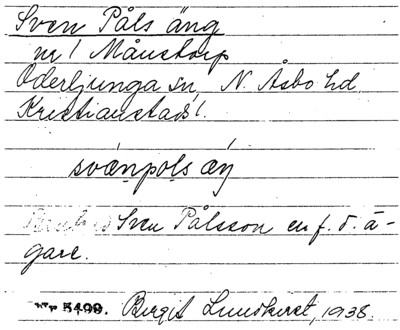 Sven Påls äng
nr 1 Månstorp
Oderljunga sn, N. Åsbo hd
Kristianstads l.
svænpols æŋ
Sven Pålsson en f. d. ä-
gare.
5499. Birgit Lundkvist, 1938.